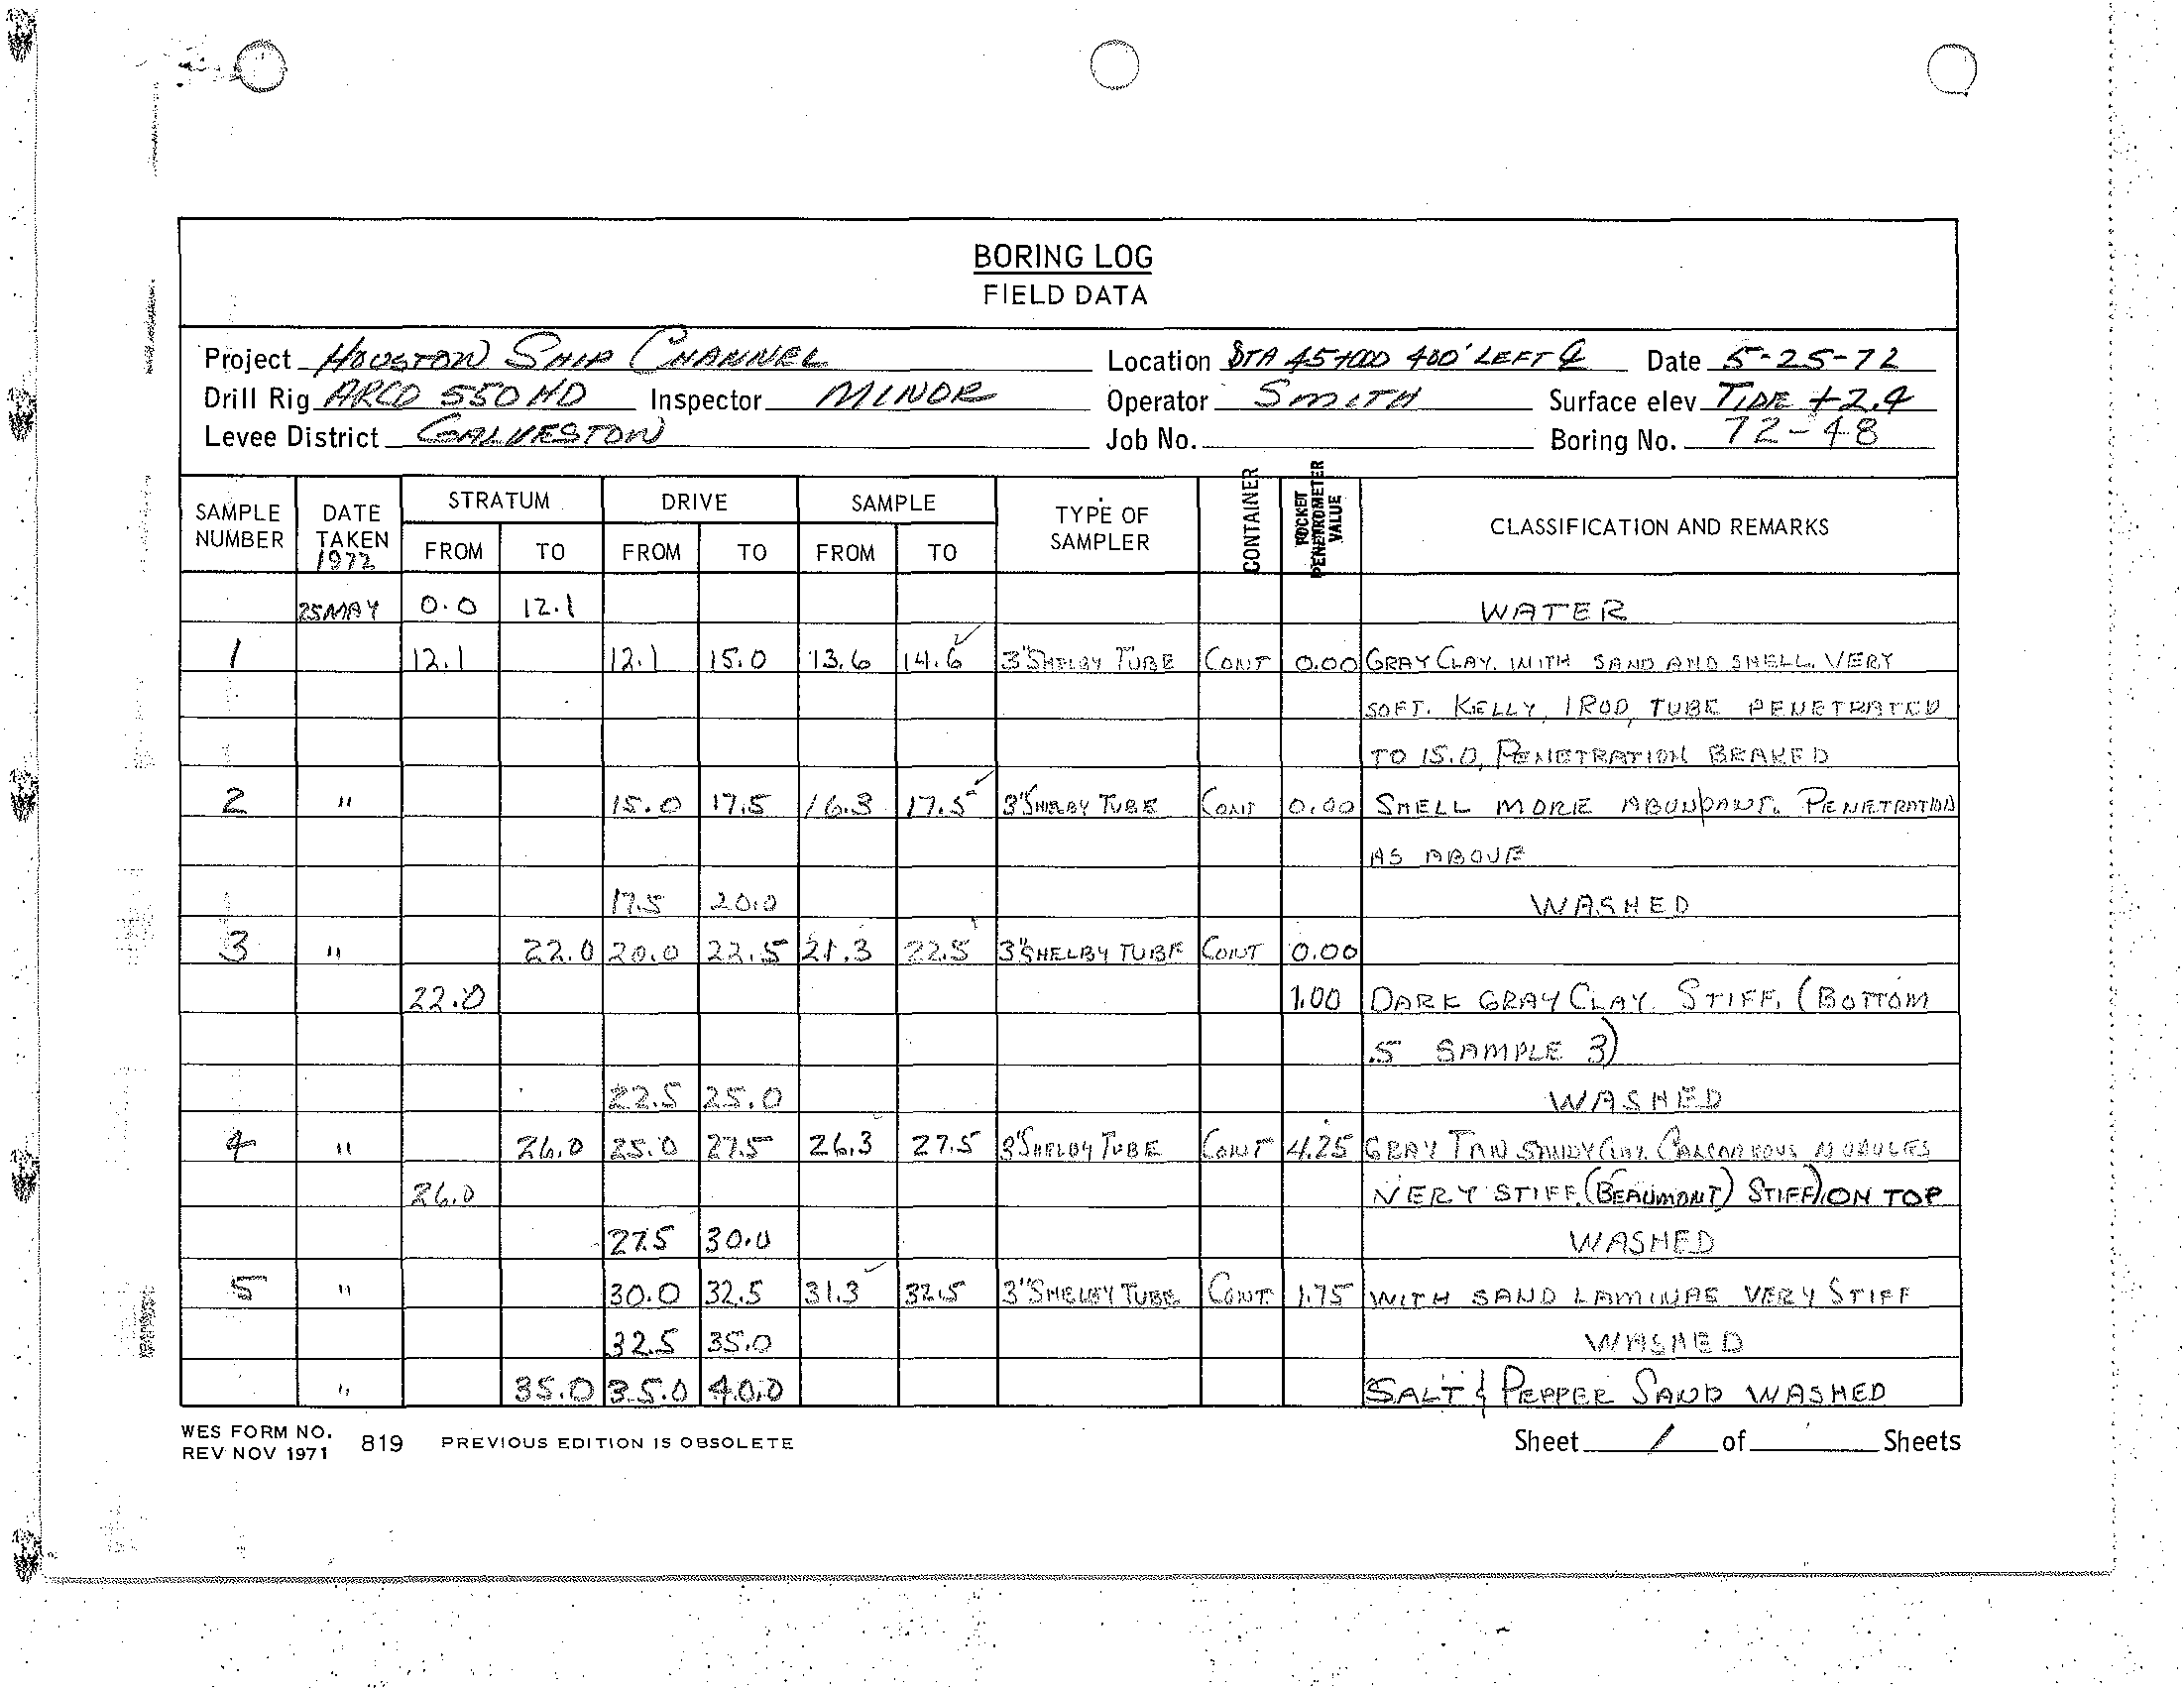 BORING LOG
FIELD DATA
Project HOUSTON SHIP CHANNEL Location STA 45+000 400' LEFT ℄ Date 5-25-72
Drill Rig ARCO 550 HD Inspector MINOR Operator SMITH Surface elev TIDE +2.4
Levee District GALVESTON Job No. Boring No. 72-48
SAMPLE NUMBER DATE TAKEN 1972 STRATUM FROM TO DRIVE FROM TO SAMPLE FROM TO TYPE OF SAMPLER CONTAINER POCKET PENETROMETER VALUE CLASSIFICATION AND REMARKS
25 MAY 0.0 12.1 WATER
1 12.1 12.1 15.0 13.6 14.6 3" SHELBY TUBE CONT 0.00 GRAY CLAY. WITH SAND AND SHELL. VERY
SOFT. KELLY, 1 ROD, TUBE PENETRATED
TO 15.0, PENETRATION BRAKED
2 " 15.0 17.5 16.3 17.5 3" SHELBY TUBE CONT 0.00 SHELL MORE ABUNDANT. PENETRATION
AS ABOVE
17.5 20.0 WASHED
3 " 22.0 20.0 22.5 21.3 22.5 3" SHELBY TUBE CONT 0.00
22.0 1.00 DARK GRAY CLAY. STIFF. (BOTTOM
.5 SAMPLE 3)
22.5 25.0 WASHED
4 " 26.0 25.0 27.5 26.3 27.5 3" SHELBY TUBE CONT 4.25 GRAY TAN SANDY CLAY. CALCAREOUS NODULES
26.0 VERY STIFF. (BEAUMONT) STIFF) ON TOP
27.5 30.0 WASHED
5 " 30.0 32.5 31.3 32.5 3" SHELBY TUBE CONT. 1.75 WITH SAND LAMINAE VERY STIFF
32.5 35.0 WASHED
" 35.0 35.0 40.0 SALT & PEPPER SAND WASHED
WES FORM NO. 819 PREVIOUS EDITION IS OBSOLETE Sheet 1 of Sheets
REV NOV 1971